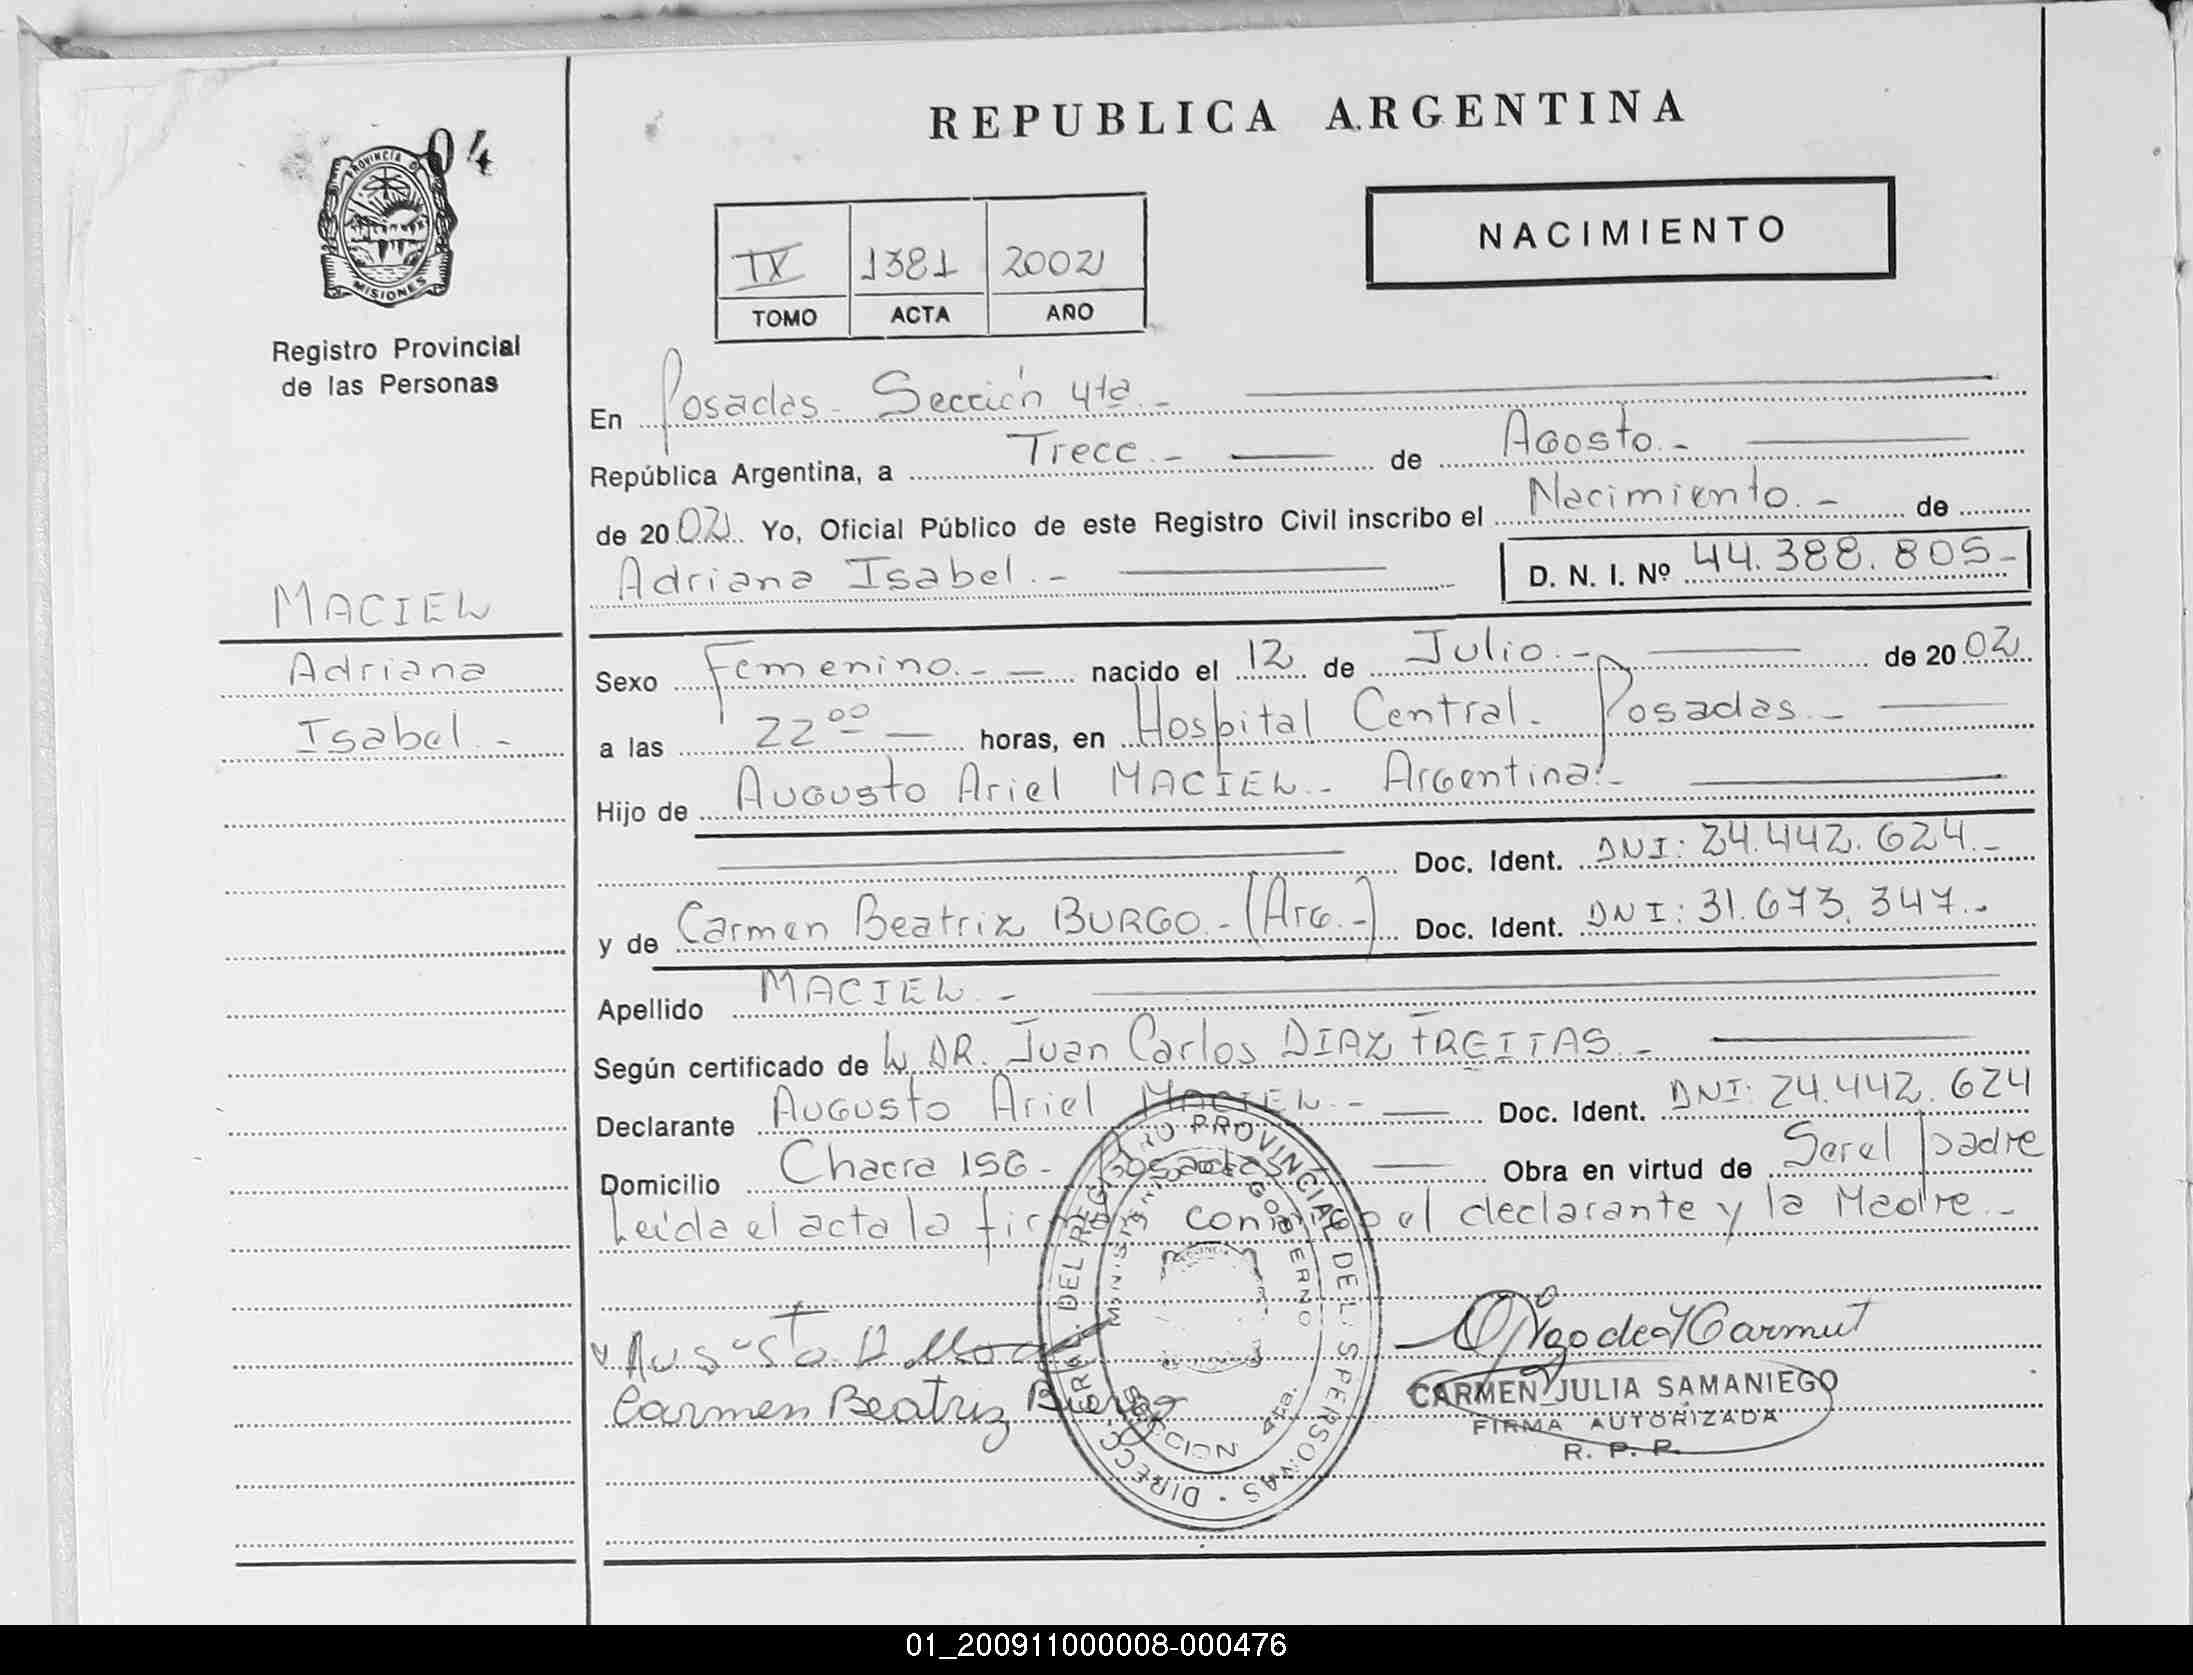 04
PROVINCIA D
MISIONES
Registro Provincial
de las Personas
MACIEL
Adriana
Isabel.-
REPUBLICA ARGENTINA
NACIMIENTO
IV 1381 2002
TOMO ACTA AÑO
En Posadas- Sección 4ta.-
República Argentina, a Trece.- de Agosto.-
de 2002. Yo, Oficial Público de este Registro Civil inscribo el Nacimiento.- de
Adriana Isabel.- D. N. I. Nº 44.388.805-
Sexo Femenino.- nacido el 12 de Julio.- de 2002
a las 22 00 horas, en Hospital Central- Posadas.-
Hijo de Augusto Ariel MACIEL.- Argentina.-
Doc. Ident. DNI: 24.442.624.-
y de Carmen Beatriz BURGO.-(Arg.-) Doc. Ident. DNI: 31.673.347.-
Apellido MACIEL.-
Según certificado de L DR. Juan Carlos DIAZ FREITAS.-
Declarante Augusto Ariel MACIEL.- Doc. Ident. DNI: 24.442.624
Domicilio Chacra 156- Posadas Obra en virtud de Ser el padre
Leída el acta la firman conmigo el declarante y la Madre.-
Carmen Beatriz Burgo
DIRECC GRAL. DEL REGISTRO PROVINCIAL DE L. S PERSONAS
MINISTERIO DE GOBIERNO
SECCION 4ta.
CARMEN JULIA SAMANIEGO
FIRMA AUTORIZADA
R. P. P.
01_200911000008-000476